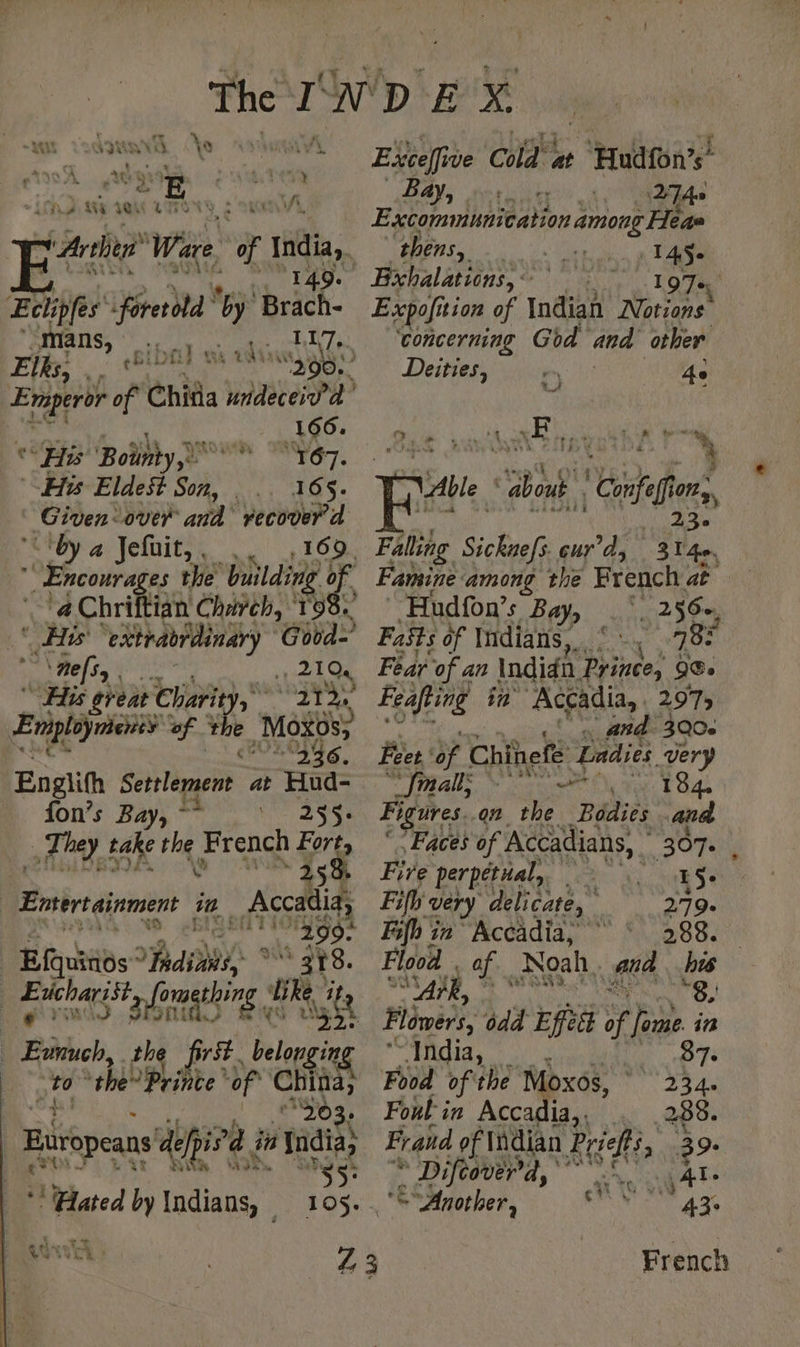 The INDEX.
E
EArthen Ware of India,
149.
Eclipſes foretold by Brach-
mans, 117.
Elks, 290.
Emperor of China undeceiv'd
166.
His Bounty, 167.
His Eldest Son, 165.
Given over and recover'd
by a Jeſuit, 169.
Encourages the building of
a Chriſtian Church, 198.
His extraordinary Good-
neſs, 210.
His great Charity, 212.
Employments of the Moxos,
236.
Engliſh Settlement at Hud-
ſon's Bay, 255.
They take the French Fort,
258.
Entertainment in Accadia,
299.
Eſquinos Indians, 318.
Eucharist, ſomething like it,
92.
Eunuch, the first belonging
to the Prince of China,
203.
Europeans deſpis'd in India,
55.
Hated by Indians, 105.
Exceſſive Cold at Hudſon's
Bay, 274.
Excommunication among Hea-
thens, 145.
Exhalations, 197.
Expoſition of Indian Notions
concerning God and other
Deities, 4.
F
FAble about Confeſſion,
23.
Falling Sickneſs cur'd, 314.
Famine among the French at
Hudſon's Bay, 256.
Fasts of Indians, 78.
Fear of an Indian Prince, 90.
Feaſting in Accadia, 297,
and 300.
Feet of Chineſe Ladies very
ſmall, 184.
Figures on the Bodies and
Faces of Accadians, 307.
Fire perpetual, 15.
Fiſh very delicate, 279.
Fiſh in Accadia, 288.
Flood of Noah and his
Ark, 8,
Flowers, odd Effect of ſome in
India, 87.
Food of the Moxos, 234.
Foul in Accadia, 288.
Fraud of Indian Prieſts, 39.
Diſcover'd, 41.
Another, 43.
Z 3
French